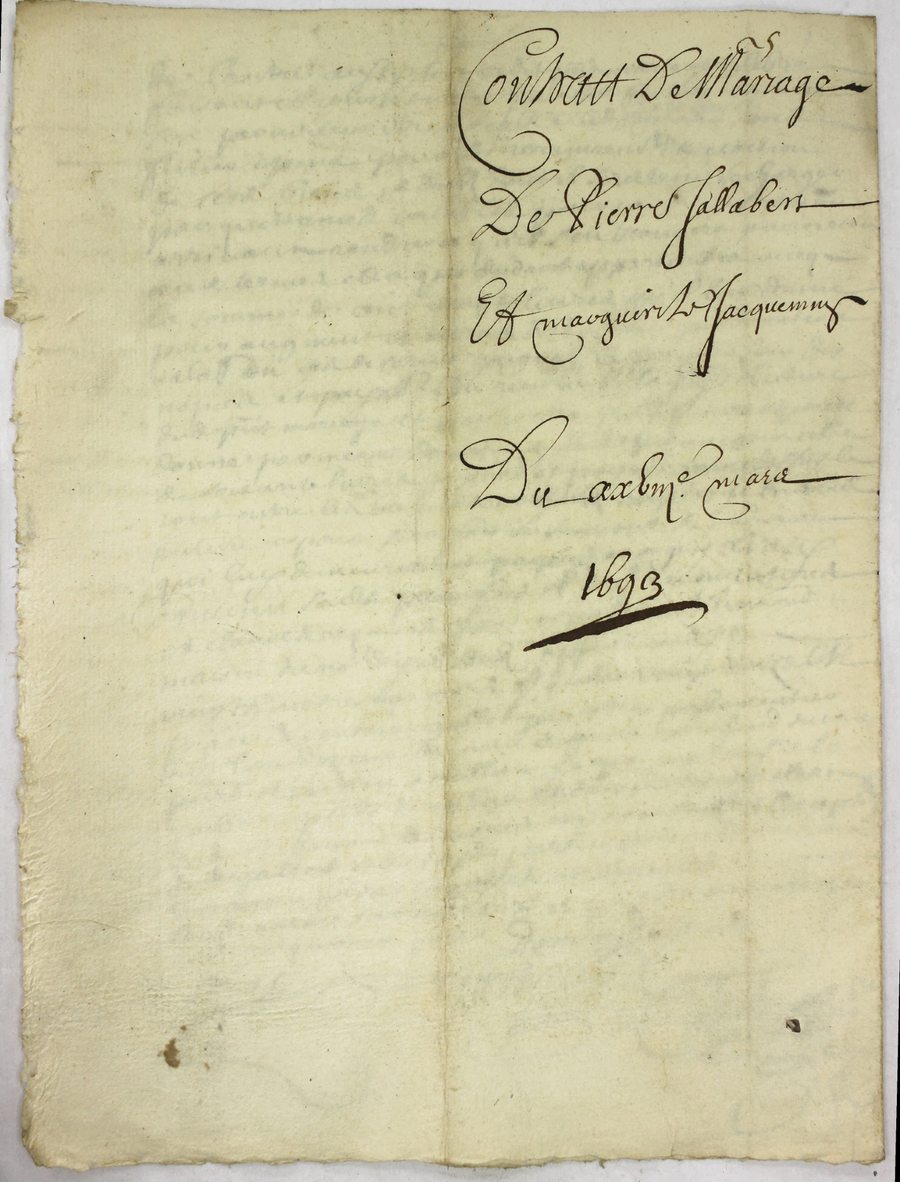 Contratt De Mariage
De Pierre Sallabert
Et marguirite Jacquemus
Du xxbiiie mars
1693